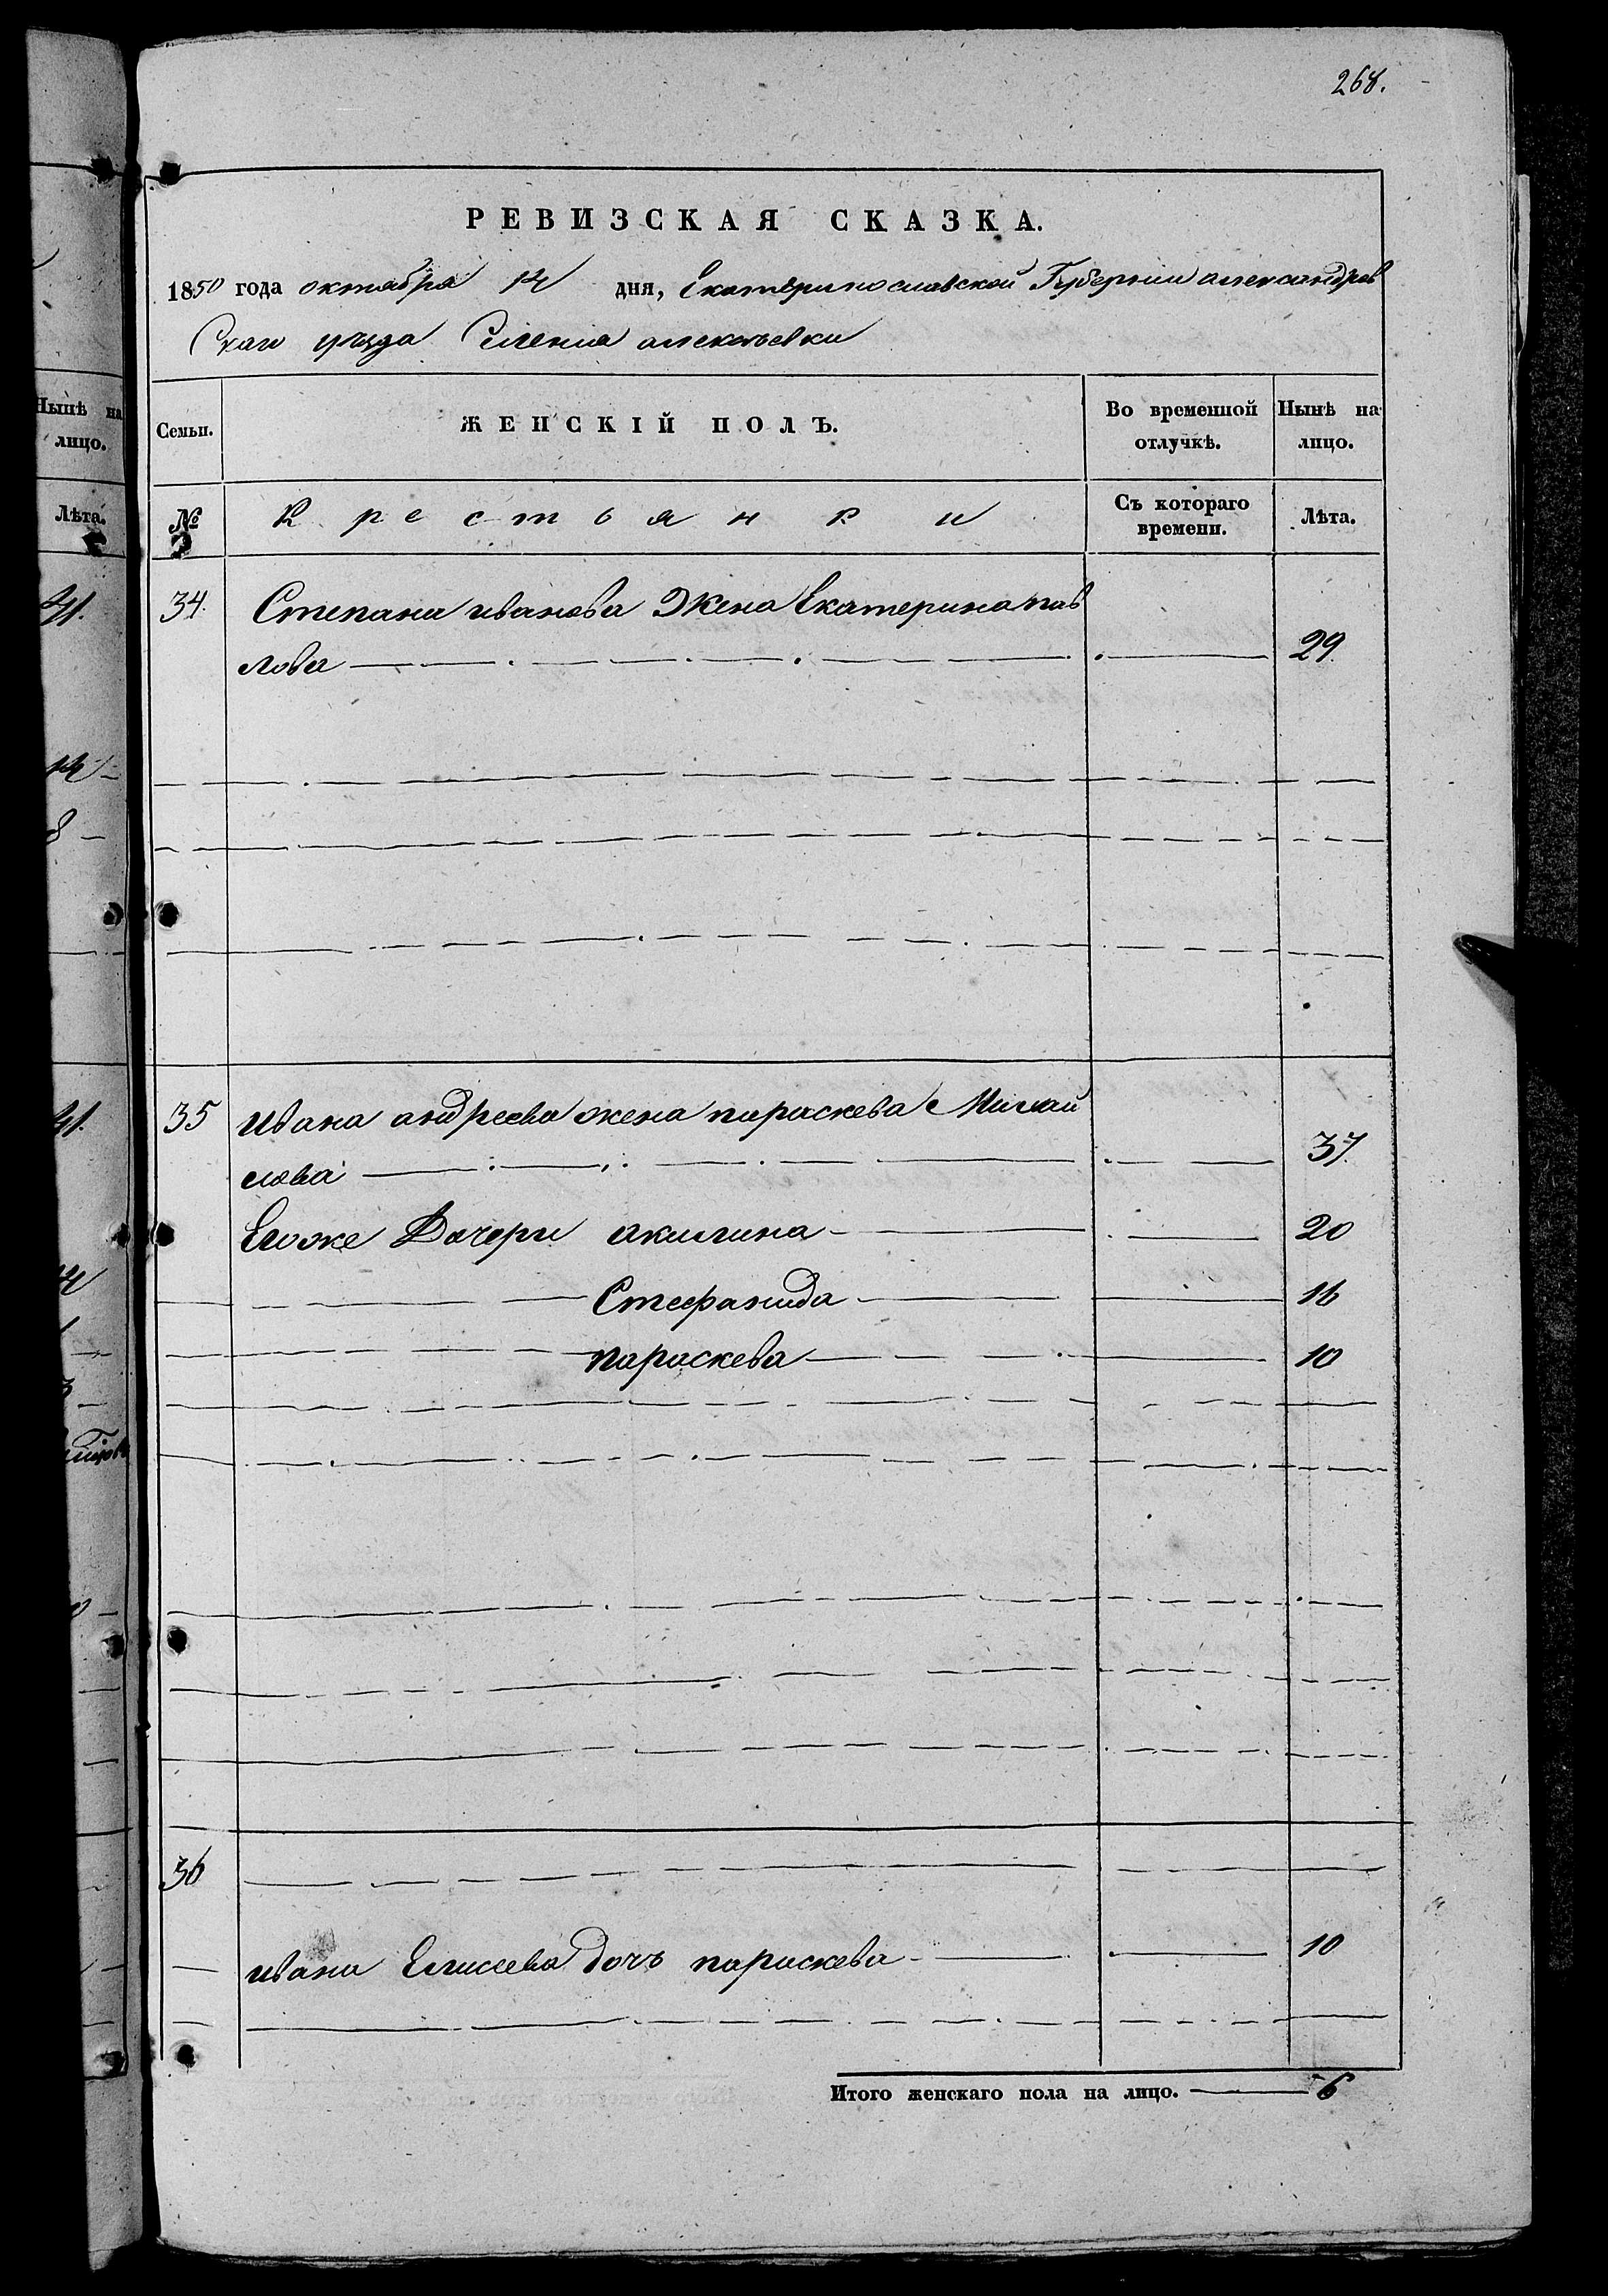 268.
РЕВИЗСКАЯ СКАЗКА.
1850 года октабря 14 дня, Екатеринославской Губернии александров
Скаго уѣзда Селенія алексѣевки
Семьи. ЖЕНСКІЙ ПОЛЪ. Во временной отлучкѣ. Нынѣ на лицо.
№ Крестьянки Съ котораго времени. Лѣта.
34. Степана иванова Жена Екатерина пав
лова 29.
35 ивана андреева жена параскева Михай
лова 37.
Егоже Дочери акилина 20
Стефанида 16
параскева 10
36
ивана Елисеева дочь параскева 10
Итого женскаго пола на лицо. 6
Нынѣ на
лицо.
Лѣта.
41.
14
8
41.